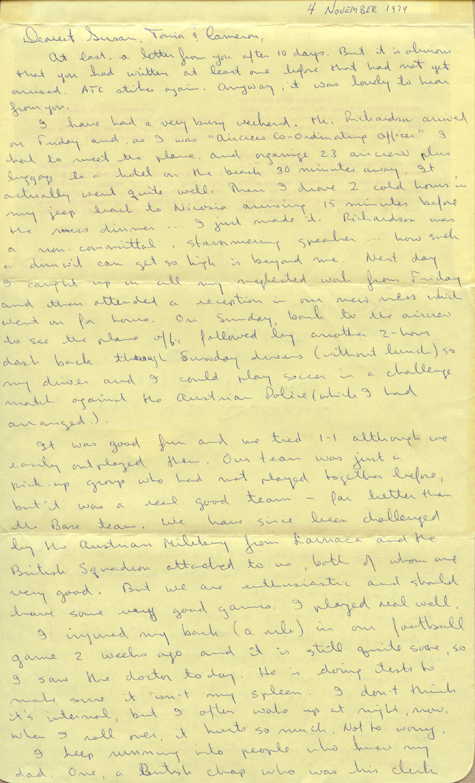 4 NOVEMBER 1974
Dearest Susan, Tonia & Cameron,
At last, a letter from you after 10 days. But it is obvious
that you had written at least one before that had not yet
arrived. ATC strikes again. Anyway, it was lovely to hear
from you.
I have had a very busy weekend. Mr. Richardson arrived
on Friday and, as I was "Aircrew Co-Ordinating Officer" I
had to meet the plane, and organize 23 aircrew plus
luggage to a hotel on the beach 30 minutes away. It
actually went quite well. Then I drove 2 cold hours in
my jeep back to Nicosia arriving 15 minutes before
the mess dinner ... I just made it. Richardson was
a non-committal, stammering speaker ... how such
a dimwit can get so high is beyond me. Next day
I caught up on all my neglected work from Friday
and then attended a reception in our new mess which
went on for hours. On Sunday, back to the aircrew
to see the plane off, followed by another 2-hour
dash back through Sunday drivers (without lunch) so
my driver and I could play soccer in a challenge
match against the Austrian Police (which I had
arranged).
It was good fun and we tied 1-1 although we
easily outplayed them. Our team was just a
pick-up group who had not played together before,
but it was a real good team - far better than
the Base team. We have since been challenged
by the Austrian Military from Larnaca and the
British Squadron attached to us, both of whom are
very good. But we are enthusiastic and should
have some very good games. I played real well.
I injured my back (a rib) in our football
game 2 weeks ago and it is still quite sore, so
I saw the doctor today. He is doing tests to
make sure it isn't my spleen. I don't think
it's internal, but I often wake up at night, now,
when I roll over, it hurts so much. Not to worry.
I keep running into people who knew my
dad. One, a British chap who was his clerk